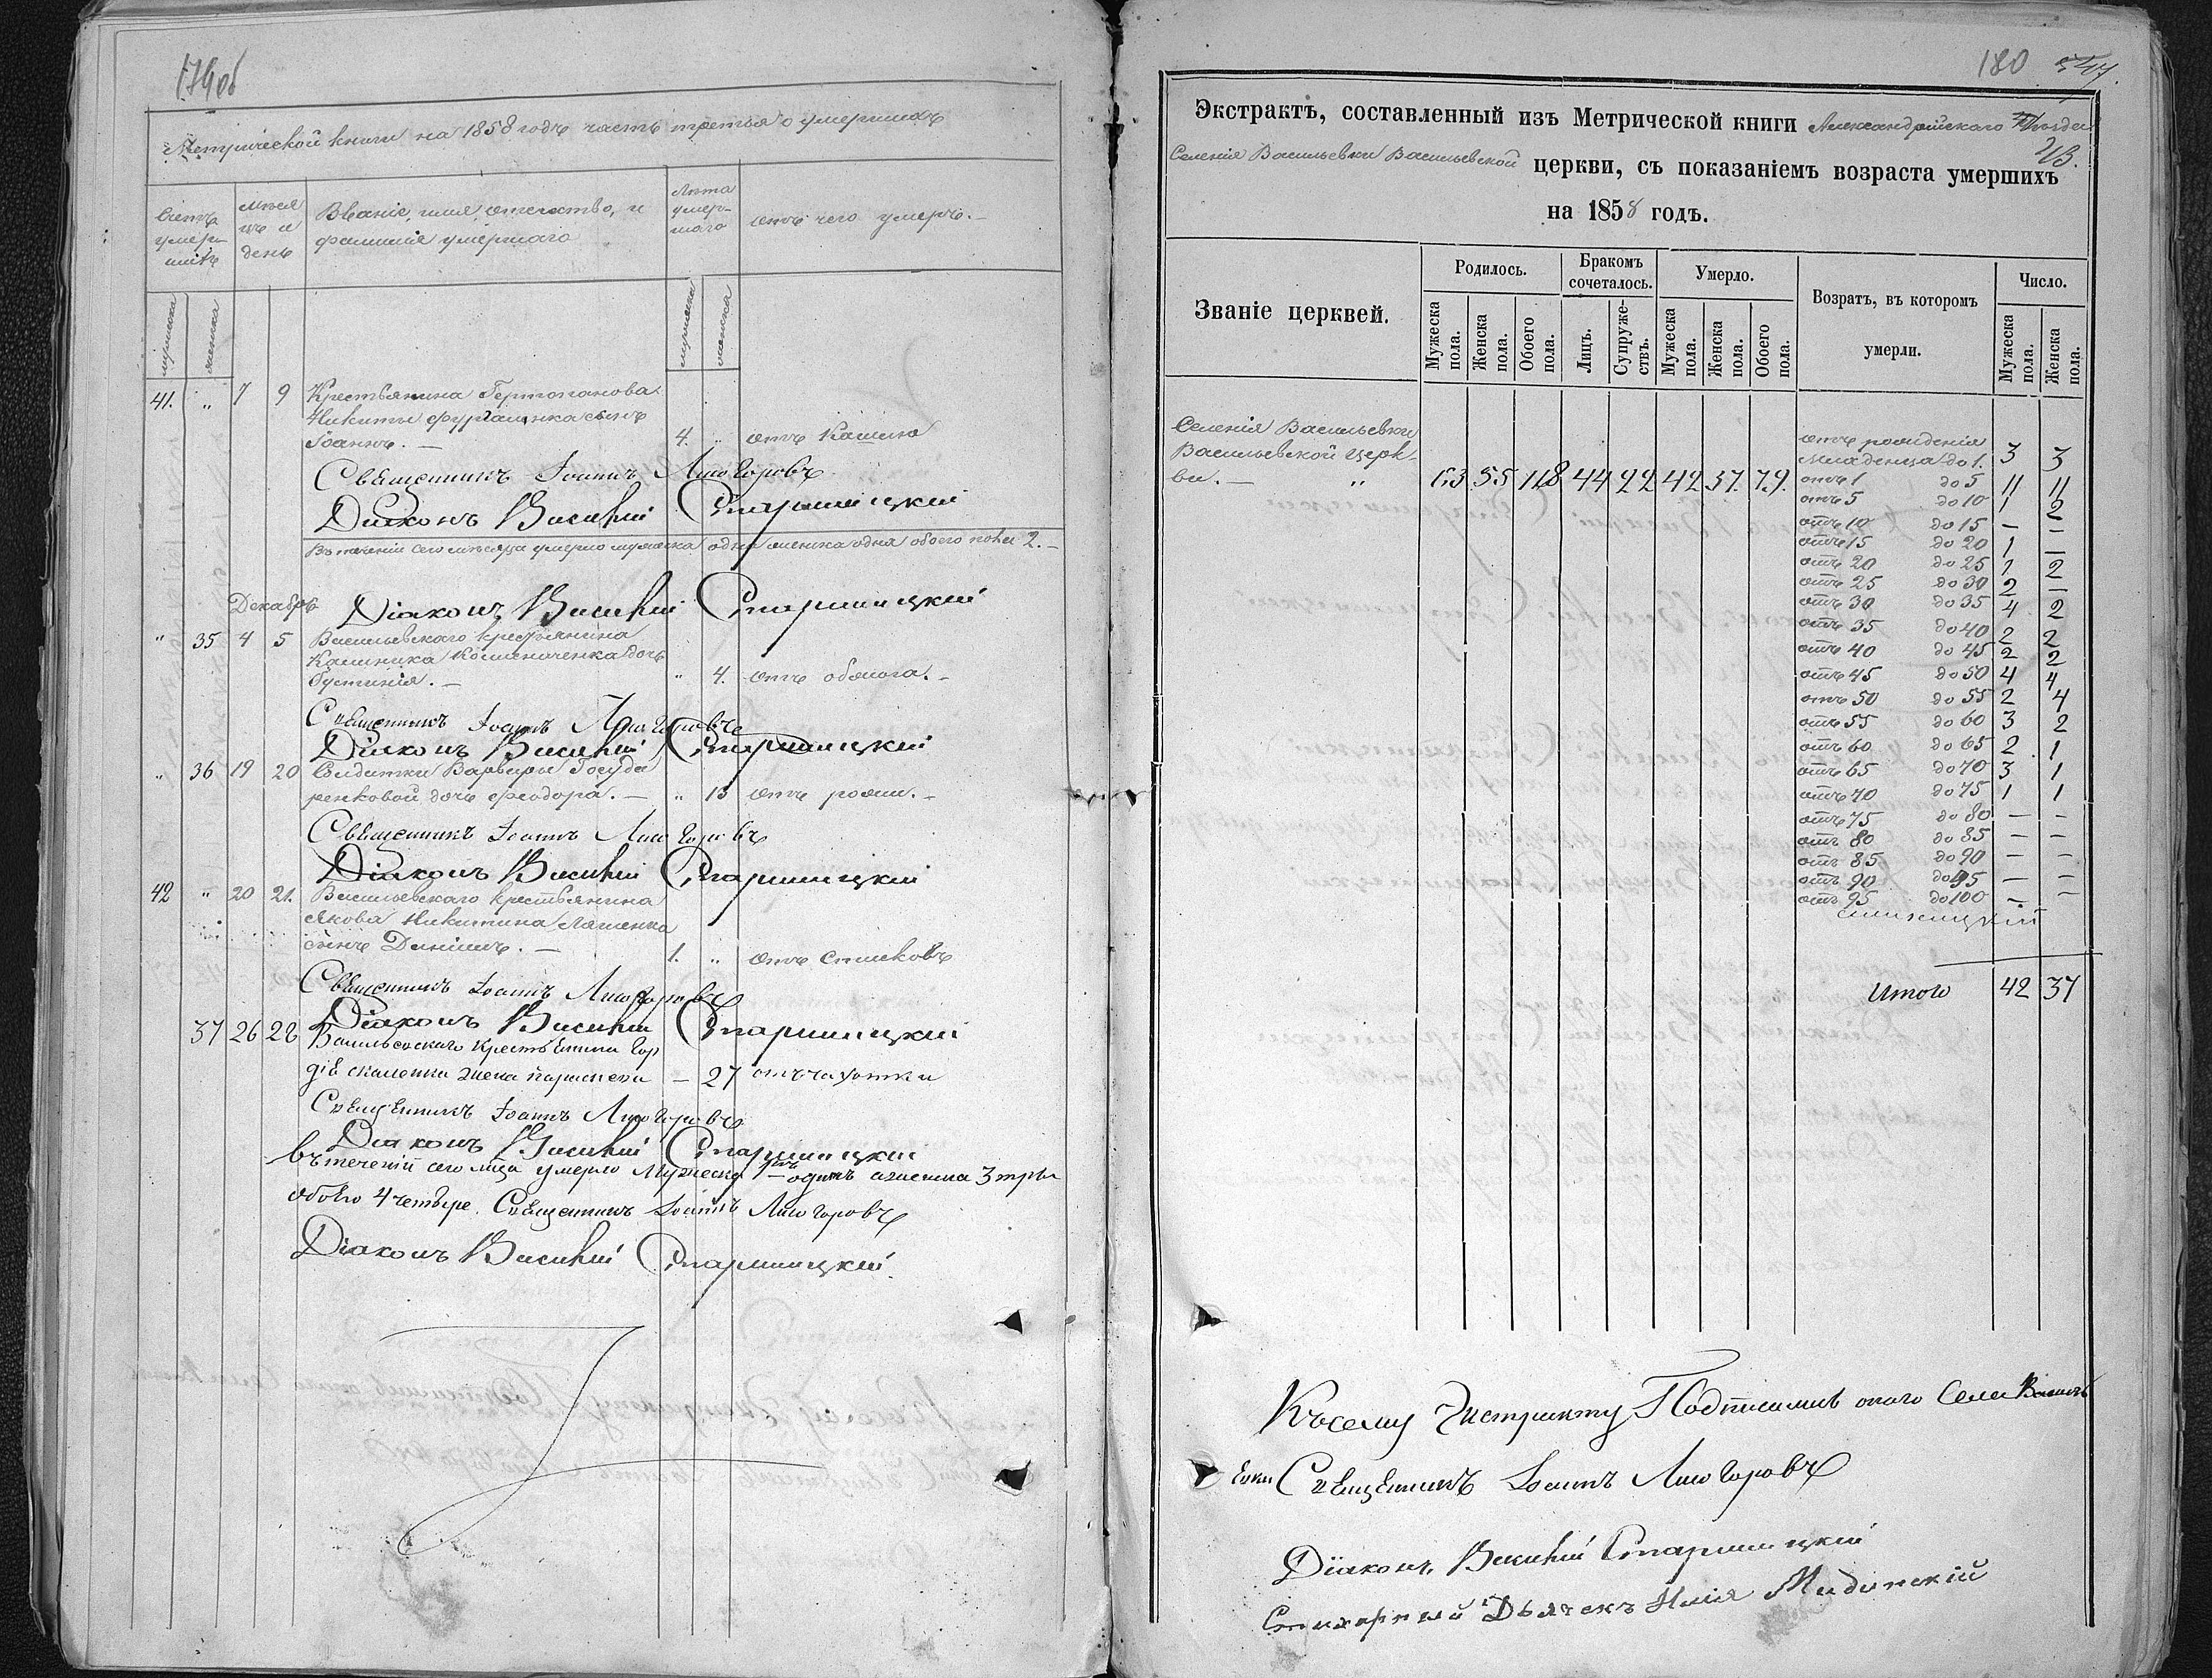 179об
Метрической книги на 1858 годъ часть третья о умершихъ
Счетъ умер-шихъ
Мѣсяцъ и день
Званіе, имя, отечество, и фамилія умершаго
Лѣта умер-шаго
отъ чего умеръ.-
мужска
женска
мужеска
женска
41. " 7 9 Крестьянина
Никиты сынъ
Іоаннъ. — 4. " отъ кашлю
Священникъ Іоаннъ Лисогоровъ
Діаконъ Василій
Въ теченіи сего мѣсяца умерло мужеска одна женска одна обоего пола 2.—
Декабрь
Діаконъ Василій
" 35 4 5 Васильевскаго крестьянина
дочь
Іустинія. — " 4. отъ обжога.-
Священникъ Іоаннъ Лисогоровъ
Діаконъ Василій
" 36 19 20 Солдатки Варвары Госуда
ренковой дочь Феодора. — " 13 отъ рожи.-
Священникъ Іоаннъ Лисогоровъ
Діаконъ Василій
42 " 20 21. Васильевскаго крестьянина
Якова Никитина Ляшенка
сынъ Даніилъ. — 1. " отъ
Священникъ Іоаннъ Лисогоровъ
Діаконъ Василій
37 26 28 Васильевскаго крестьянина Гор
дѣя жена Параскева — 27 отъ чахотки
Священникъ Іоаннъ Лисогоровъ
Діаконъ Василій
въ теченіи сего мца умерло Мужеска одинъ женска 3 три
обоего 4 четыре. Священникъ Іоаннъ Лисогоровъ
Діаконъ Василій
180
Экстрактъ, составленный изъ Метрической книги Александрійскаго Уѣзда
Селенія Васильевки Васильевской церкви, съ показаніемъ возраста умершихъ
на 1858 годъ.
Званіе церквей.
Родилось.
Бракомъ сочеталось.
Умерло.
Возратъ, въ котором умерли.
Число.
Мужеска пола.
Женска пола.
Обоего пола.
Лицъ.
Супруже-ствъ.
Мужеска пола.
Женска пола.
Обоего пола.
Мужеска пола.
Женска пола.
Селенія Васильевки
Васильевской церк-
ви. — " 63 55 118 44 22 42 37. 79.
отъ рожденія
младенца до 1. 3 3
отъ 1 до 5 11 11
отъ 5 до 10 1 2
отъ 10 до 15 — —
отъ 15 до 20 1 —
отъ 20 до 25 1 2
отъ 25 до 30 2 —
отъ 30 до 35 4 2
отъ 35 до 40 2 2
отъ 40 до 45 2 2
отъ 45 до 50 4 4
отъ 50 до 55 2 4
отъ 55 до 60 3 2
отъ 60 до 65 2 1
отъ 65 до 70 3 1
отъ 70 до 75 1 1
отъ 75 до 80 — —
отъ 80 до 85 — —
отъ 85 до 90 — —
отъ 90 до 95 — —
отъ 95 до 100 — —
Итого 42 37
Къ сему Экстракту Подписались оного Села Василь
евки Священникъ Іоаннъ Лисогоровъ
Діаконъ Василій
Стихарный Дьячекъ Илія